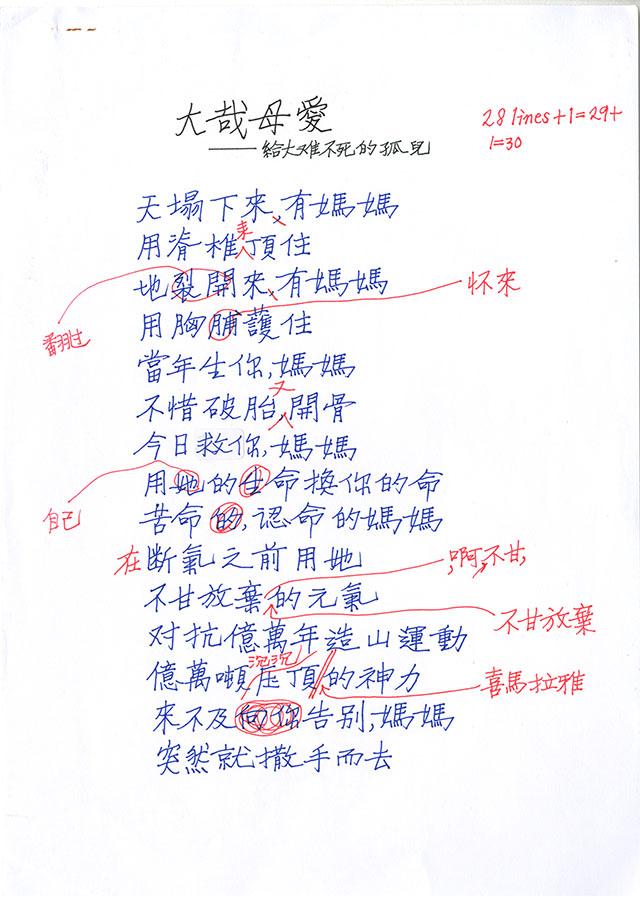 大哉母愛
——給大难不死的孤兒
28 lines + 1 = 29 +
1 = 30
天塌下來,有媽媽
來
用脊椎頂住
地裂開來,有媽媽
翻过
怀來
用胸脯護住
當年生你,媽媽
又
不惜破胎,開骨
今日救你,媽媽
用她的生命換你的命
自己
苦命的,認命的媽媽
在断氣之前用她
,啊,不甘,
不甘放棄的元氣
不甘放棄
对抗億萬年造山運動
沉沉
億萬噸压頂的神力
喜馬拉雅
來不及向你告别,媽媽
突然就撒手而去